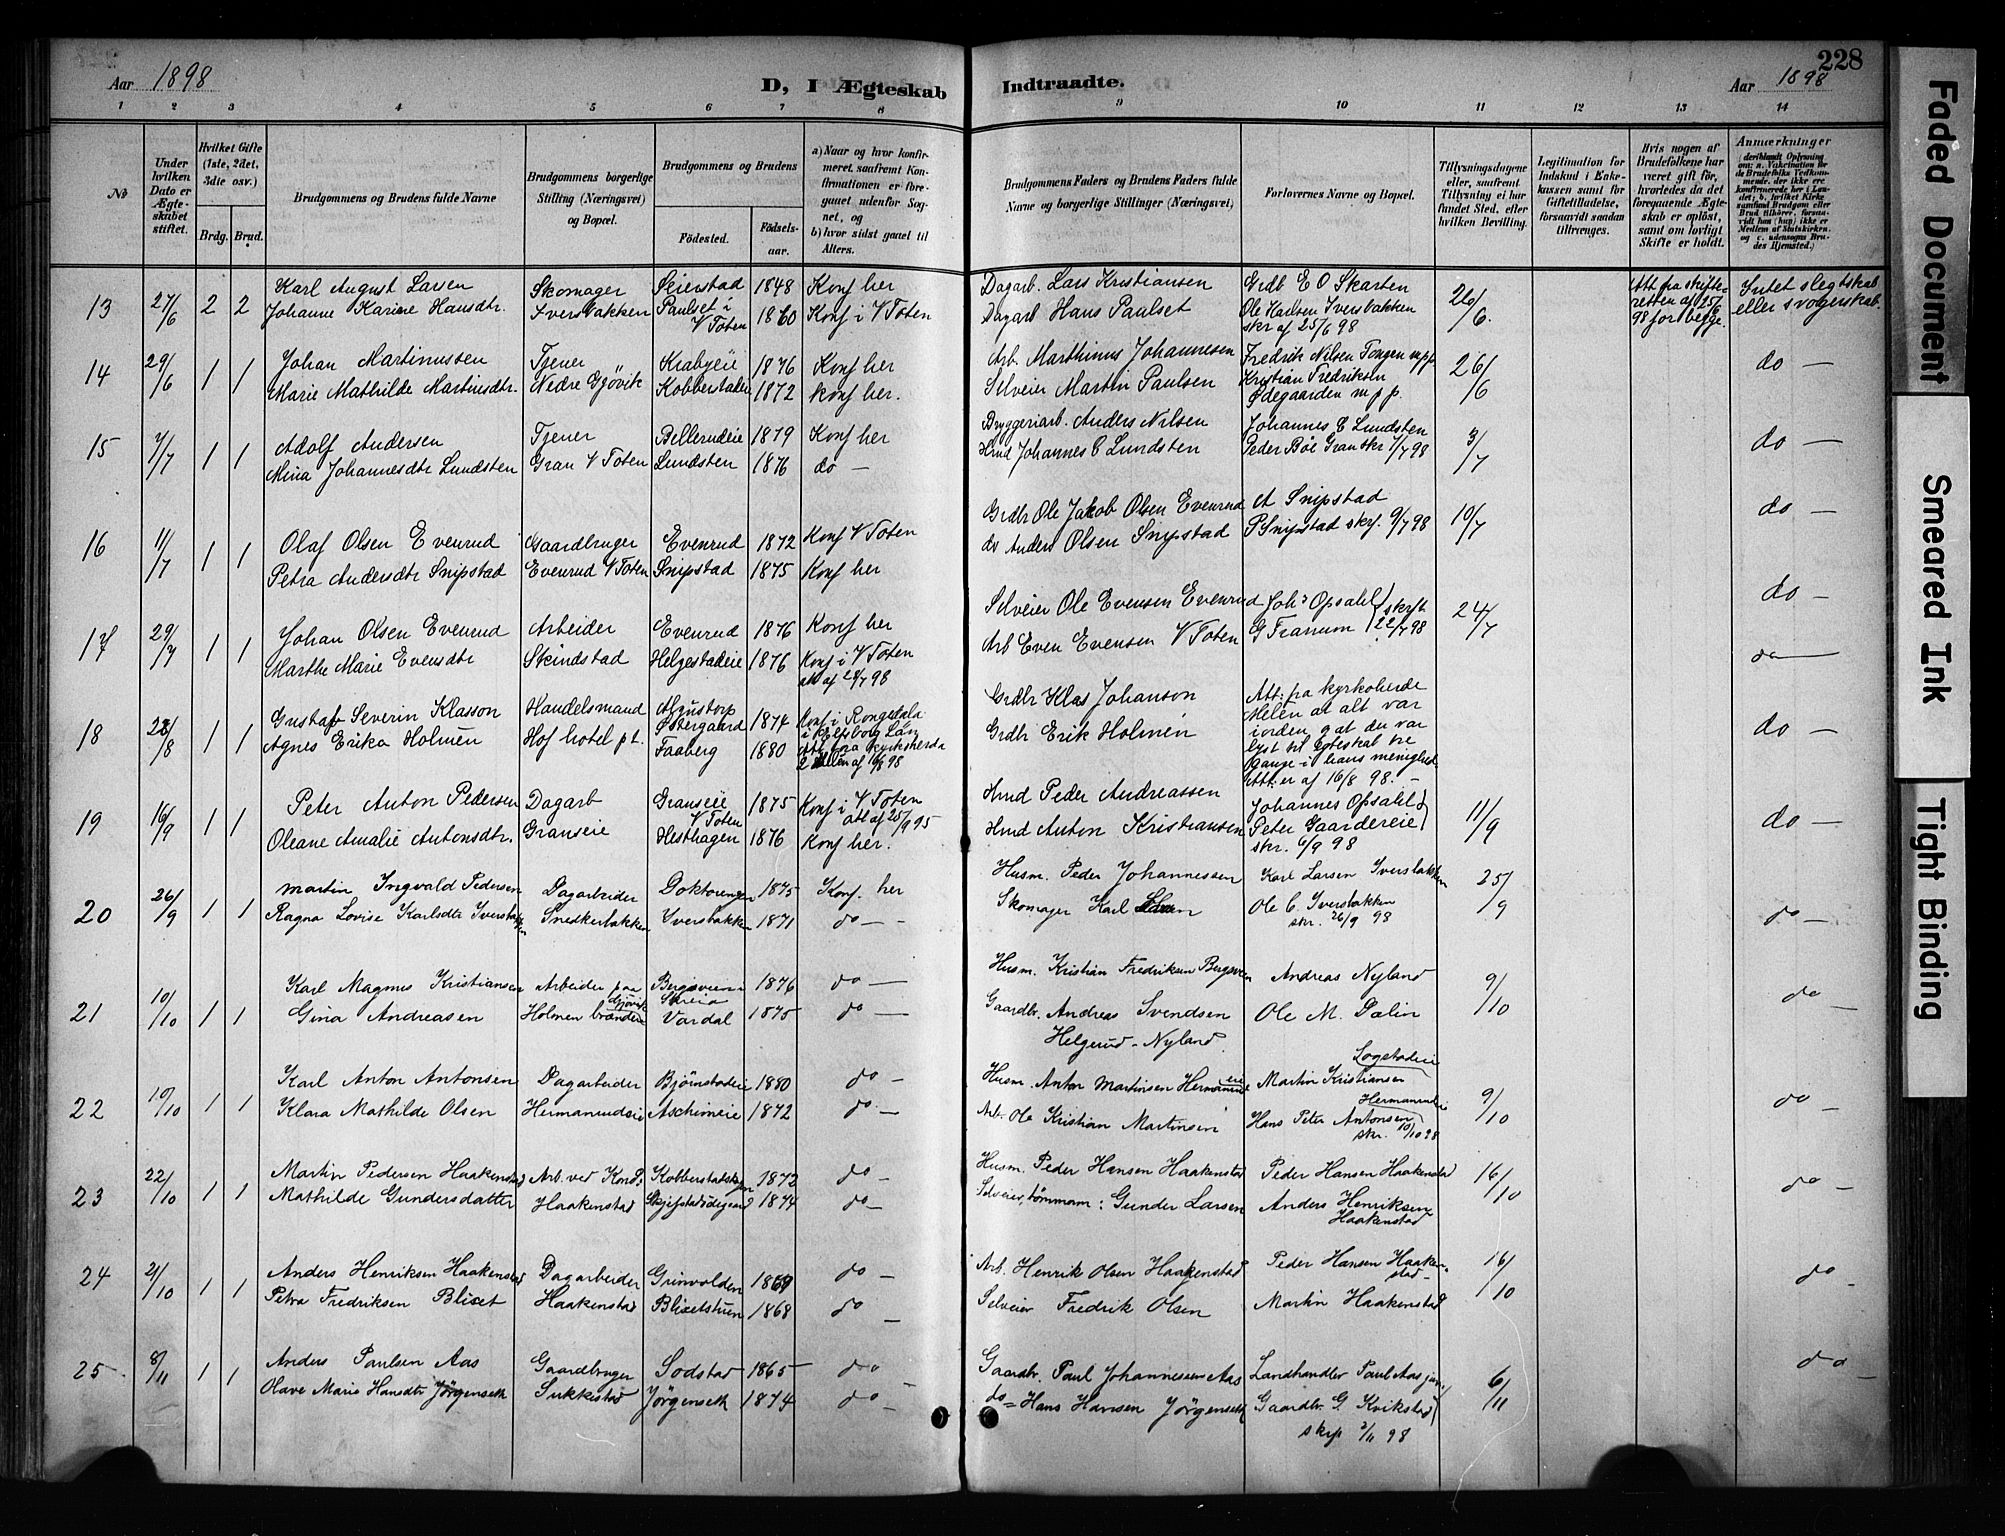 228
Aar 1898
D, I Ægteskab Indtraadte.
Aar 1898
1 2 3 4 5 6 7 8 9 10 11 12 13 14
No
Under hvilken Dato er Ægteskabet stiftet.
Hvilket Gifte (1ste, 2det, 3die osv.)
Brdg. Brud.
Brudgommens og Brudens fulde Navne
Brudgommens borgerlige Stilling (Næringsvei) og Bopæl.
Brudgommens og Brudens
Fødested.
Fødselsaar.
a) Naar og hvor konfirmeret, saafremt Konfirmationen er foregaaet udenfor Sognet, og
b) hvor sidst gaaet til Alters.
Brudgommens Faders og Brudens Faders fulde Navne og borgerlige Stillinger (Næringsvei)
Forlovernes Navne og Bopæl.
Tillysningsdagene eller, saafremt Tillysning ei har fundet Sted, efter hvilken Bevilling.
Legitimation for Indskud i Enkekassen samt for Giftetilladelse, forsaavidt saadan tiltrænges.
Hvis nogen af Brudefolkene har været gift før, hvorledes da det foregaaende Ægteskab er opløst, samt om lovligt Skifte er holdt.
Anmærkninger
13 27/6 2 2 Karl August Larsen Skomager Seierstad 1848 Konf her Dagarb. Lars Kristiansen Grdb E O Skarten 26/6. Att fra skifteretten af 25/6 98 for begge. Intet slegtskab eller svogerskab.
Johanne Karine Hansdtr. Iversbakken Paulset i V Toten 1860 Konf i V Toten Dagarb Hans Paulset Ole Iversbakken skr af 25/6 98
14 29/6 1 1 Johan Martinussen Tjener Krabyeie 1876 Konf her Arb. Marthinus Johannesen Fredrik Nilsen Tongen mpp 26/6 do —
Marie Mathilde Martinsdtr. Nedre Gjøvik 1872 konf her. Selveier Martin Paulsen Kristian Fredriksen Ødegaarden m p p.
15 1/7 1 1 Adolf Andersen Tjener Bellerudeie 1879 Konf her Bryggeriarb. Anders Nilsen Johannes C Lundsten 3/7 do —
Mina Johannesdtr Lundsten Gran V Toten Lundsten 1876 do — Hmd Johannes C Lundsten Peder Bøe Gran skr 1/7 98
16 11/7 1 1 Olaf Olsen Evenrud Gaardbruger Evenrud 1872 Konf V Toten Grdbr Ole Jakob Olsen Evenrud A Snipstad 10/7 do —
Petra Andersdtr Snipstad Evenrud V Toten Snipstad 1875 Konf her do Anders Olsen Snipstad P Snipstad skr. 9/7 98
17 29/7 1 1 Johan Olsen Evenrud Arbeider Evenrud 1876 Konf her Selveier Ole Evensen Evenrud Joh's Opsahl 24/7 do —
Marthe Marie Evensdtr Skindstad Helgestadeie 1876 Konf i V Toten att af 28/7 98 Arb Even Evensen V Toten G Tranum skrft 22/7 98 do —
18 28/8 1 1 Gustaf Severin Klasson Handelsmand Østergaard 1874 Grdbr Klas Johanson Att: fra kyrkoherde Melén at alt var iorden og at der var lyst til Egteskab tre Gange i hans menighed. Att. er af 16/8 98. — do —
Agnes Erika Holmén Hof hotel p.t. Faaberg 1880 Grdbr Erik Holmén
19 16/9 1 1 Peter Anton Pedersen Dagarb Granseie V Toten 1875 Konf i V Toten att af 25/9 95 Hmd Peder Andreassen Johannes Opsahl 11/9 do —
Oleane Amalie Antonsdtr. Granseie Hesthagen 1876 Konf her. Hmd Anton Kristiansen Peter Gaardereie skr. 6/9 98
20 26/9 1 1 Martin Ingvald Pedersen Dagarbeider Doktorengen 1875 Konf. her Husm. Peder Johannessen Karl Larsen Iversbakken 25/9 do —
Ragna Lovise Karlsdtr Iversbakken Snedkerbakken Iversbakken 1871 do — Skomager Karl Ole C. Iversbakken skr. 26/9 98
21 10/10 1 1 Karl Magnus Kristiansen Arbeider paa Bergsveien 1876 do — Husm. Kristian Fredriksen Bergsveen Andreas Nyland 9/10 do —
Gina Andreasen Holmen brænderi Gjøvik Vardal 1875 do — Gaardbr. Andreas Svendsen Helgerud-Nyland Ole M. Dalin
22 10/10 1 1 Karl Anton Antonsen Dagarbeider Bjørnstadeie 1880 do — Husm. Anton Martinsen Hermanrudeie Martin Kristiansen 9/10 do —
Klara Mathilde Olsen Hermanrudeie Aschimeie 1872 do — Arb. Ole Kristian Martinsen Hans Peter Antonsen Hermanrudeie skr. 10/10 98
23 22/10 1 1 Martin Pedersen Haakenstad Arb. ved 1872 do — Husm. Peder Hansen Haakenstad Peder Hansen Haakenstad 16/10 do —
Mathilde Gundersdatter Haakenstad 1874 do — Selveier, tømmerm: Gunder Larsen Anders Henriksen Haakenstad
24 21/10 1 1 Anders Henriksen Haakenstad Dagarbeider Grinvolden 1869 do — Arb. Henrik Olsen Haakenstad Peder Hansen Haakenstad 16/10 do —
Petra Fredriksen Blixet Haakenstad Blixetstuen 1868 do — Selveier Fredrik Olsen Martin Haakenstad
25 8/11 1 1 Anders Paulsen Aas Gaardbruger Sodstad 1865 do Gaardbr. Paul Johannessen Aas Landhandler Paul Aas jun. 6/11 do —
Olave Marie Hansdtr Jørgenseth Sukkestad Jørgenseth 1874 do — do — Hans Hansen Jørgenseth Gaardbr. G. Kvikstad skr 2/11 98
Faded Document
Smeared Ink
Tight Binding